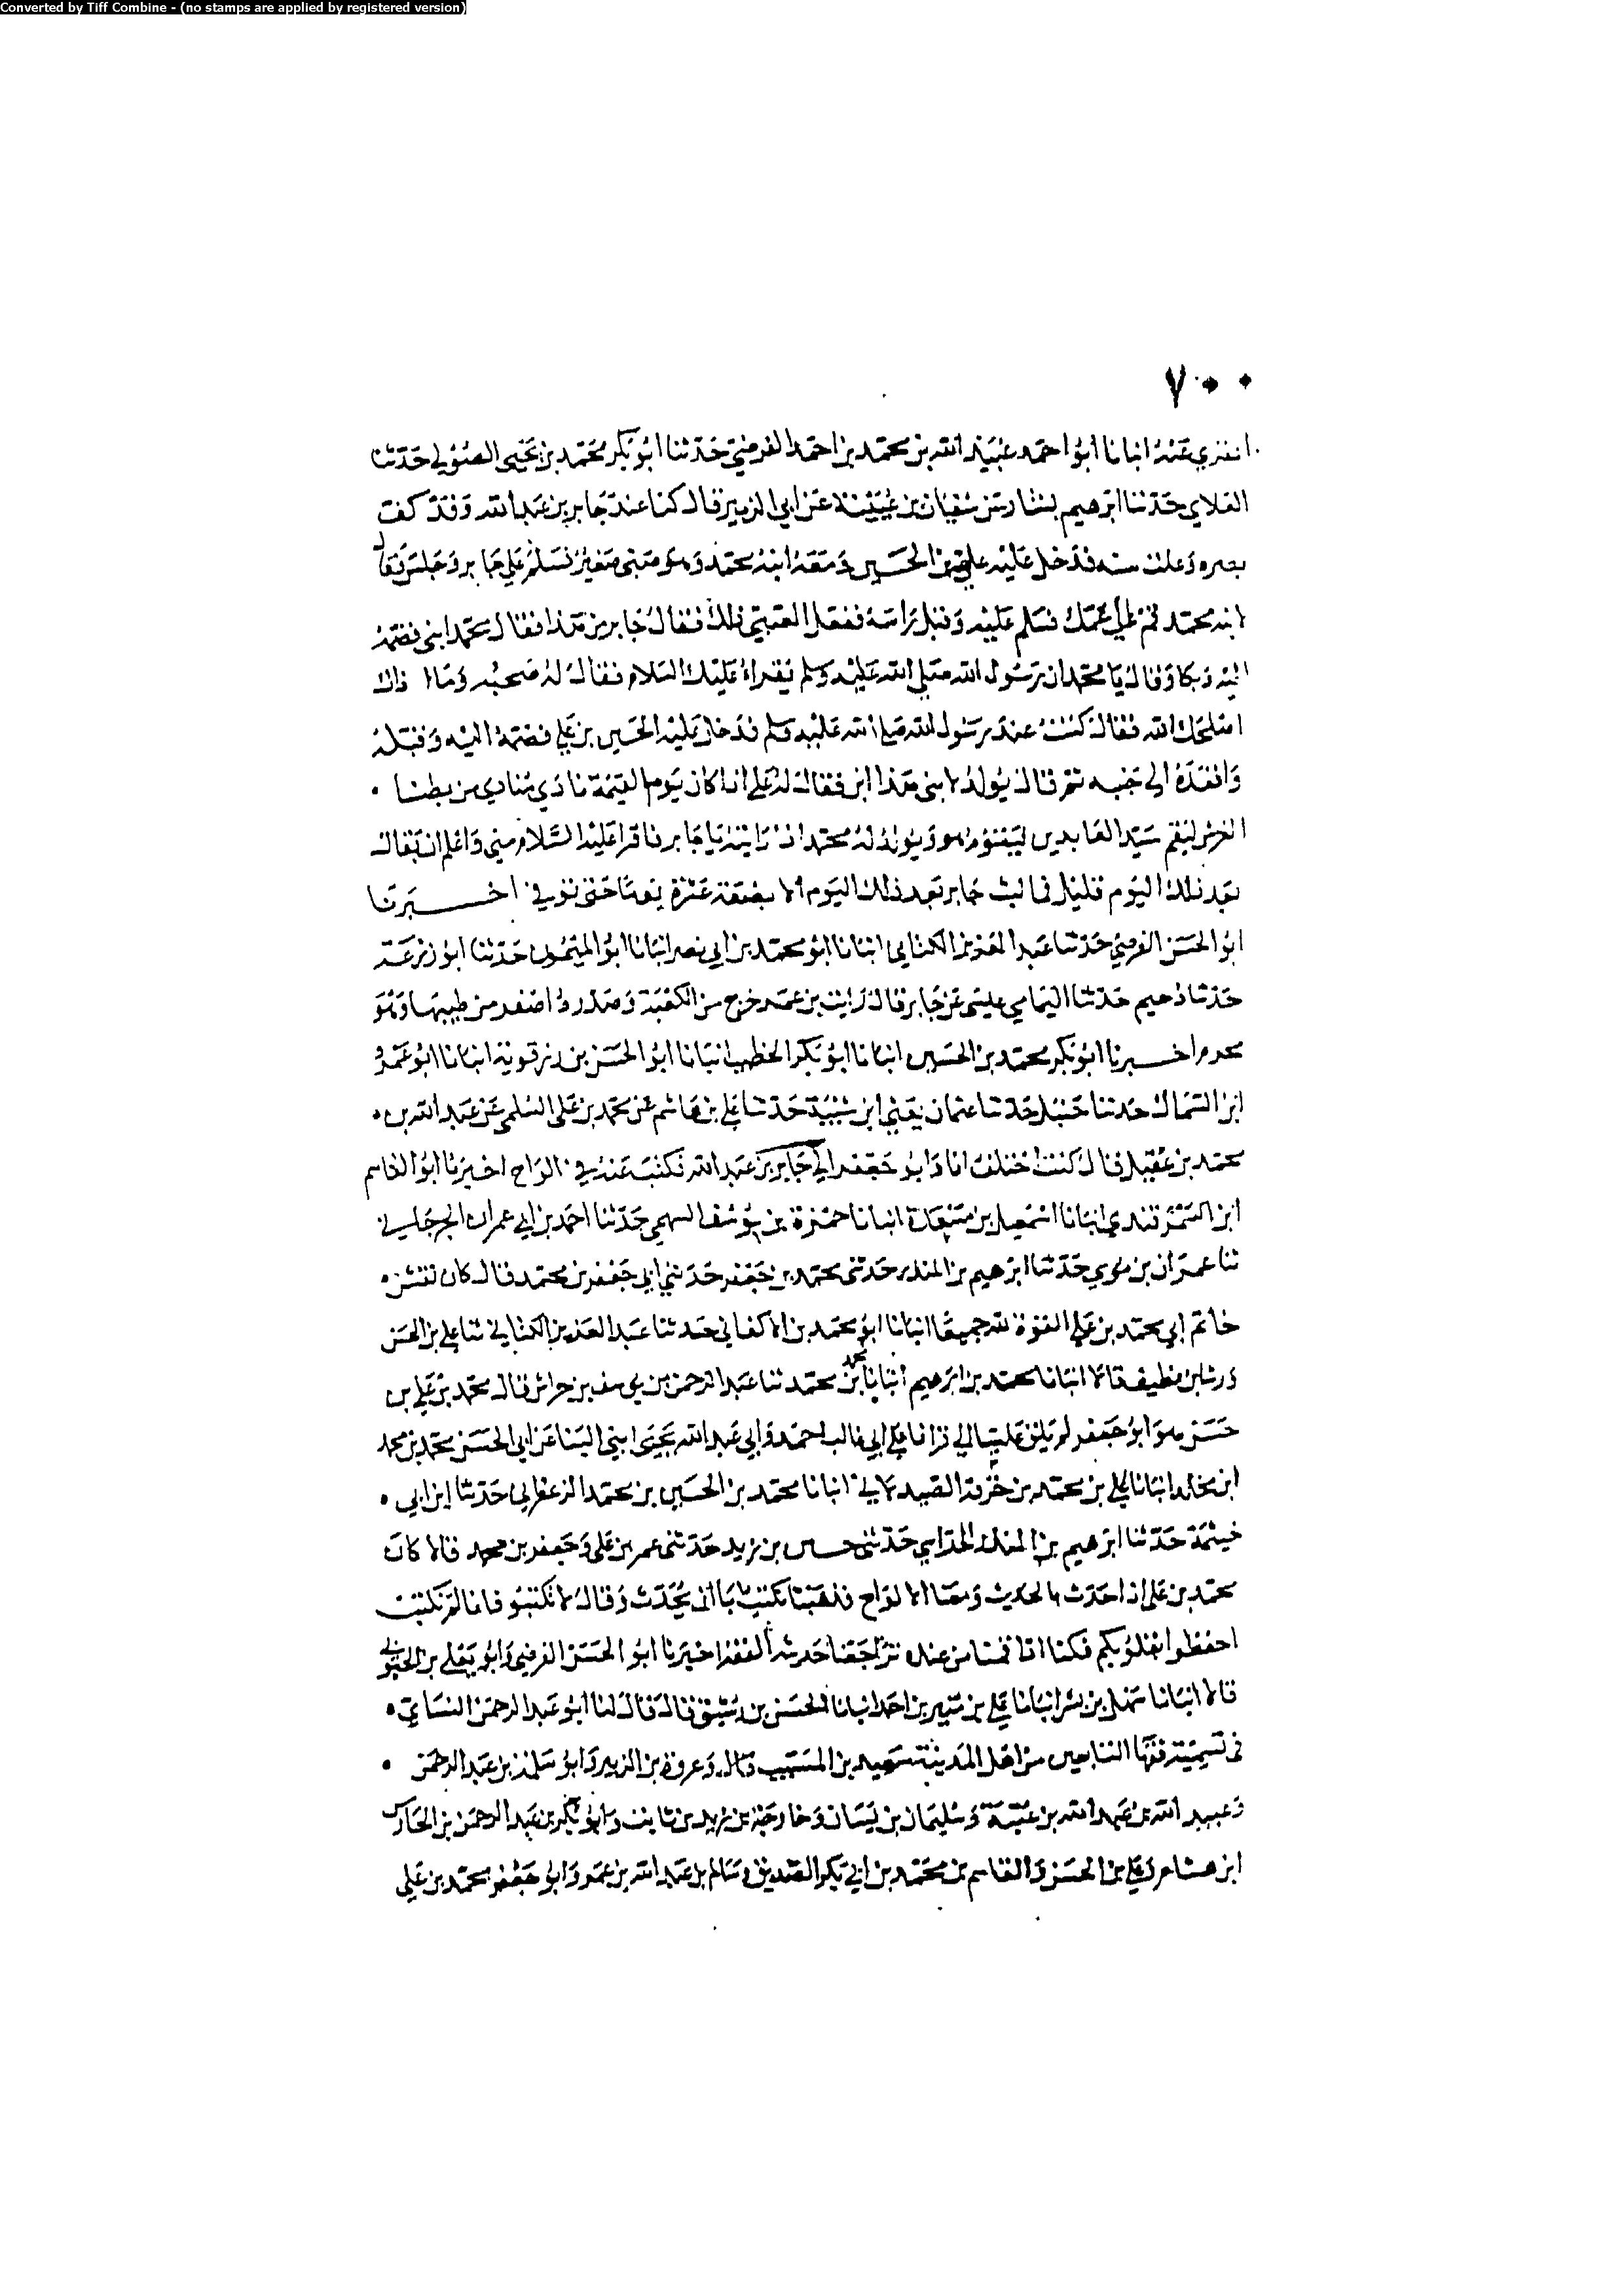 Converted by Tiff Combine - (no stamps are applied by registered version)
٧٠٠
عنه انبانا ابو احمد عبيد الله بن محمد بن احمد الفرضي حدثنا ابو بكر محمد بن يحيى الصولي حدثنا
الغلابي حدثنا ابرهيم بن بشار عن سفيان بن عيينة عن ابي الزبير قال كنا عند جابر بن عبد الله وقد كف
بصره وعلت سنه فدخل عليه علي بن الحسين ومعه ابنه محمد وهو صبي صغير فسلم على جابر وجلس فقال
لابنه محمد قم الى عمك فسلم عليه وقبل راسه ففعل الصبي ذلك فقال جابر من هذا فقال محمد ابني فضمه
اليه وبكا وقال يا محمد ان رسول الله صلى الله عليه وسلم يقراء عليك السلام فقال له صحبه وما ذاك
اصلحك الله فقال كنت عند رسول الله صلى الله عليه وسلم فدخل عليه الحسين بن علي فضمه اليه وقبله
واقعده الى جنبه ثم قال يولد لابني هذا ابن فقال له علي اذا كان يوم القيمة نادى منادي من بطنا
العرش ليقم سيد العابدين فيقوم هو ويولد له محمد اذا رايته يا جابر فاقرا عليه السلام مني واعلم ان بقاك
بعد ذلك اليوم قليل فما لبث جابر بعد ذلك اليوم الا بضعة عشرة يوما حتى توفي اخبرنا
ابو الحسن الفرضي حدثنا عبد العزيز الكتاني انبانا ابو محمد بن ابي نصر انبانا ابو الميمون حدثنا ابو زرعة
حدثنا دحيم حدثنا اليمامي عن جابر قال رايت بن عمر خرج من الكعبة وصدره اصفر من طيبها وهو
محرم اخبرنا ابو بكر محمد بن الحسين انبانا ابو بكر الخطيب انبانا ابو الحسن بن رزقوية انبانا ابو عمرو
ابن السماك حدثنا حنبل حدثنا عثمان يعني ابن شيبة حدثنا علي بن هاشم عن محمد بن علي السلمي عن عبد الله بن
محمد بن عقيل قال كنت اختلف انا وابو جعفر الى جابر بن عبد الله نكتب عنه في الواح اخبرنا ابو القاسم
ابن السمرقندي انبانا اسمعيل بن مسعدة انبانا حمزة بن يوسف السهمي حدثنا احمد بن ابي عمران الجرجاني
ثنا عمران بن موسى حدثنا ابرهيم بن المنذر حدثني محمد بن جعفر حدثني ابي جعفر بن محمد قال كان نقش
خاتم ابي محمد بن علي القوة لله جميعا انبانا ابو محمد بن الاكفاني حدثنا عبد العزيز الكتاني ثنا علي بن الحسن
ورشا بن نظيف قالا انبانا محمد بن ابرهيم انبانا محمد بن محمد ثنا عبد الرحمن بن يوسف بن خراش قال محمد بن علي بن
حسين هو ابو جعفر لم يلق عليا قرانا على ابي غالب احمد وابي عبد الله يحيى ابني البنا عن ابي الحسن محمد بن محمد
ابن مخلد انبانا علي بن محمد بن خزفة الصيدلاني انبانا محمد بن الحسين بن محمد الزعفراني حدثنا ابن ابي
خيثمة حدثنا ابرهيم بن المنذر الحزامي حدثني حسين بن زيد حدثني عمر بن علي وجعفر بن محمد قالا كان
محمد بن علي اذا حدث بالحديث ومعنا الالواح فذهبنا نكتب ابا ان يحدث وقال لا تكتبو فانا لم نكتب
احفظوا بقلوبكم فكنا اذا قمنا من عنده تراجعنا اخبرنا ابو الحسن الفرضي وابو يعلى بن الحبوبي
قالا انبانا سهل بن بشر انبانا علي بن منير بن احمد انبانا الحسن بن رشيق قال قال لنا ابو عبد الرحمن النسائي
في تسمية فقها التابعين من اهل المدينة سعيد بن المسيب وعروة بن الزبير وابو سلمة بن عبد الرحمن
وعبيد الله بن عبد الله بن عتبة وسليمان بن يسار وخارجة بن زيد بن ثابت وابو بكر بن عبد الرحمن بن الحارث
ابن هشام وعلي بن الحسين والقاسم بن محمد بن ابي بكر الصديق وسالم بن عبد الله بن عمر وابو جعفر محمد بن علي